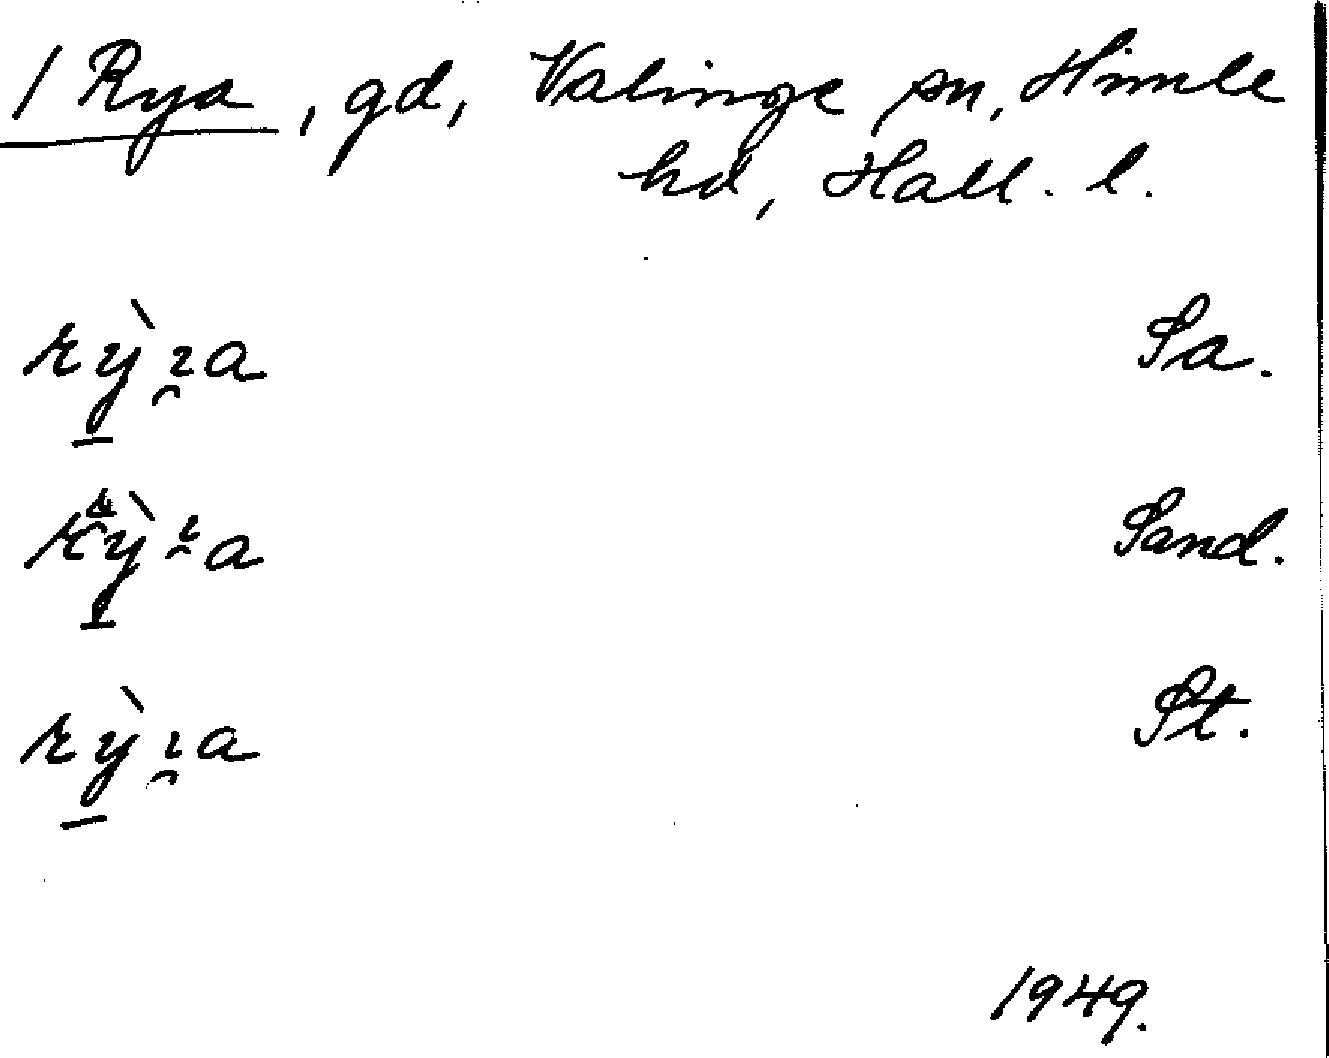 1 Rya, gd, Valinge sn, Himle
hd, Hall. l.
rỳɿa Sa.
Sand.
rỳɿa St.
1949.